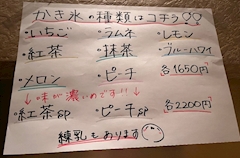 かき氷の種類はコチラ♡♡
・いちご ・ラムネ ・レモン
・紅茶 ・抹茶 ・ブルーハワイ
・メロン ・ピーチ 各1650円
↓味が濃いのです!!↓
・紅茶SP ・ピーチSP 各2200円
練乳もあります